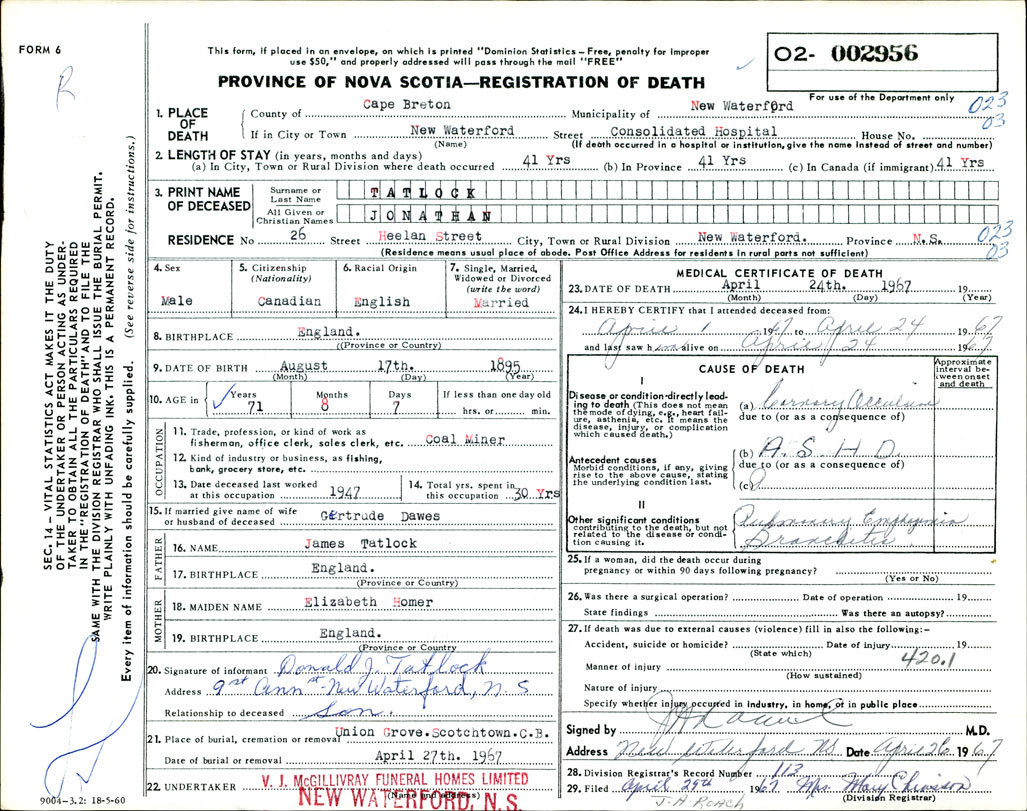 FORM 6
This form, if placed in an envelope, on which is printed "Dominion Statistics – Free, penalty for improper
use $50," and properly addressed will pass through the mail "FREE"
PROVINCE OF NOVA SCOTIA—REGISTRATION OF DEATH
02- 002956
For use of the Department only
R
SEC. 14 – VITAL STATISTICS ACT MAKES IT THE DUTY
OF THE UNDERTAKER OR PERSON ACTING AS UNDER-
TAKER TO OBTAIN ALL THE PARTICULARS REQUIRED
IN THE "REGISTRATION OF DEATH" AND TO FILE THE
SAME WITH THE DIVISION REGISTRAR WHO SHALL ISSUE THE BURIAL PERMIT.
WRITE PLAINLY WITH UNFADING INK. THIS IS A PERMANENT RECORD.
Every item of information should be carefully supplied. (See reverse side for instructions.)
1. PLACE OF DEATH County of Cape Breton Municipality of New Waterford 023
03
If in City or Town New Waterford Street Consolidated Hospital House No.
(Name) (If death occurred in a hospital or institution, give the name instead of street and number)
2. LENGTH OF STAY (in years, months and days)
(a) In City, Town or Rural Division where death occurred 41 Yrs (b) In Province 41 Yrs (c) In Canada (if immigrant) 41 Yrs
3. PRINT NAME OF DECEASED Surname or Last Name TATLOCK
All Given or Christian Names JONATHAN
RESIDENCE No 26 Street Heelan Street City, Town or Rural Division New Waterford. Province N.S. 023
03
(Residence means usual place of abode. Post Office Address for residents in rural parts not sufficient)
4. Sex
Male
5. Citizenship
(Nationality)
Canadian
6. Racial Origin
English
7. Single, Married, Widowed or Divorced
(write the word)
Married
8. BIRTHPLACE England.
((Province or Country)
9. DATE OF BIRTH August 17th. 1895
(Month) (Day) (Year)
10. AGE in Years 71 Months 8 Days 7 If less than one day old
hrs. or min.
OCCUPATION
11. Trade, profession, or kind of work as
fisherman, office clerk, sales clerk, etc. Coal Miner
12. Kind of industry or business, as fishing,
bank, grocery store, etc.
13. Date deceased last worked
at this occupation 1947
14. Total yrs. spent in
this occupation 30 Yrs
15. If married give name of wife
or husband of deceased Gertrude Dawes
FATHER
16. NAME James Tatlock
17. BIRTHPLACE England.
(Province or Country)
MOTHER
18. MAIDEN NAME Elizabeth Homer
19. BIRTHPLACE England.
(Province or Country
20. Signature of informant Donald J. Tatlock
Address New Waterford, N S
Relationship to deceased Son.
21. Place of burial, cremation or removal Union Grove.Scotchtown.C.B.
Date of burial or removal April 27th. 1967
22. UNDERTAKER V. J. McGILLIVRAY FUNERAL HOMES LIMITED
(Name and address)
NEW WATERFORD, N. S.
9004–3.2: 18-5-60
MEDICAL CERTIFICATE OF DEATH
23. DATE OF DEATH April 24th. 1967 19
(Month) (Day) (Year)
24. I HEREBY CERTIFY that I attended deceased from:
April 1 1967 to April 24 1967
and last saw him alive on April 24 1967
CAUSE OF DEATH
Approximate
interval be-
tween onset
and death
I
Disease or condition directly lead-
ing to death (This does not mean
the mode of dying, e.g., heart fail-
ure, asthenia, etc. It means the
disease, injury, or complication
which caused death.)
(a) Coronary Occulsion
due to (or as a consequence of)
Antecedent causes
Morbid conditions, if any, giving
rise to the above cause, stating
the underlying condition last.
(b) A. S. H. D.
due to (or as a consequence of)
(c)
II
Other significant conditions
contributing to the death, but not
related to the disease or condi-
tion causing it.
Pulmonary Emphysemia
Bronchitis
25. If a woman, did the death occur during
pregnancy or within 90 days following pregnancy?
(Yes or No)
26. Was there a surgical operation? Date of operation 19
State findings Was there an autopsy?
27. If death was due to external causes (violence) fill in also the following:–
Accident, suicide or homicide? Date of injury 19
(State which)
420.1
Manner of injury
(How sustained)
Nature of injury
Specify whether injury occurred in industry, in home, or in public place
Signed by M.D.
Address New Waterford NS Date April 26 1967
28. Division Registrar's Record Number 113
29. Filed April 29th 1967 Mrs. Mary Chiasson
(Division Registrar)
J. A. ROACH